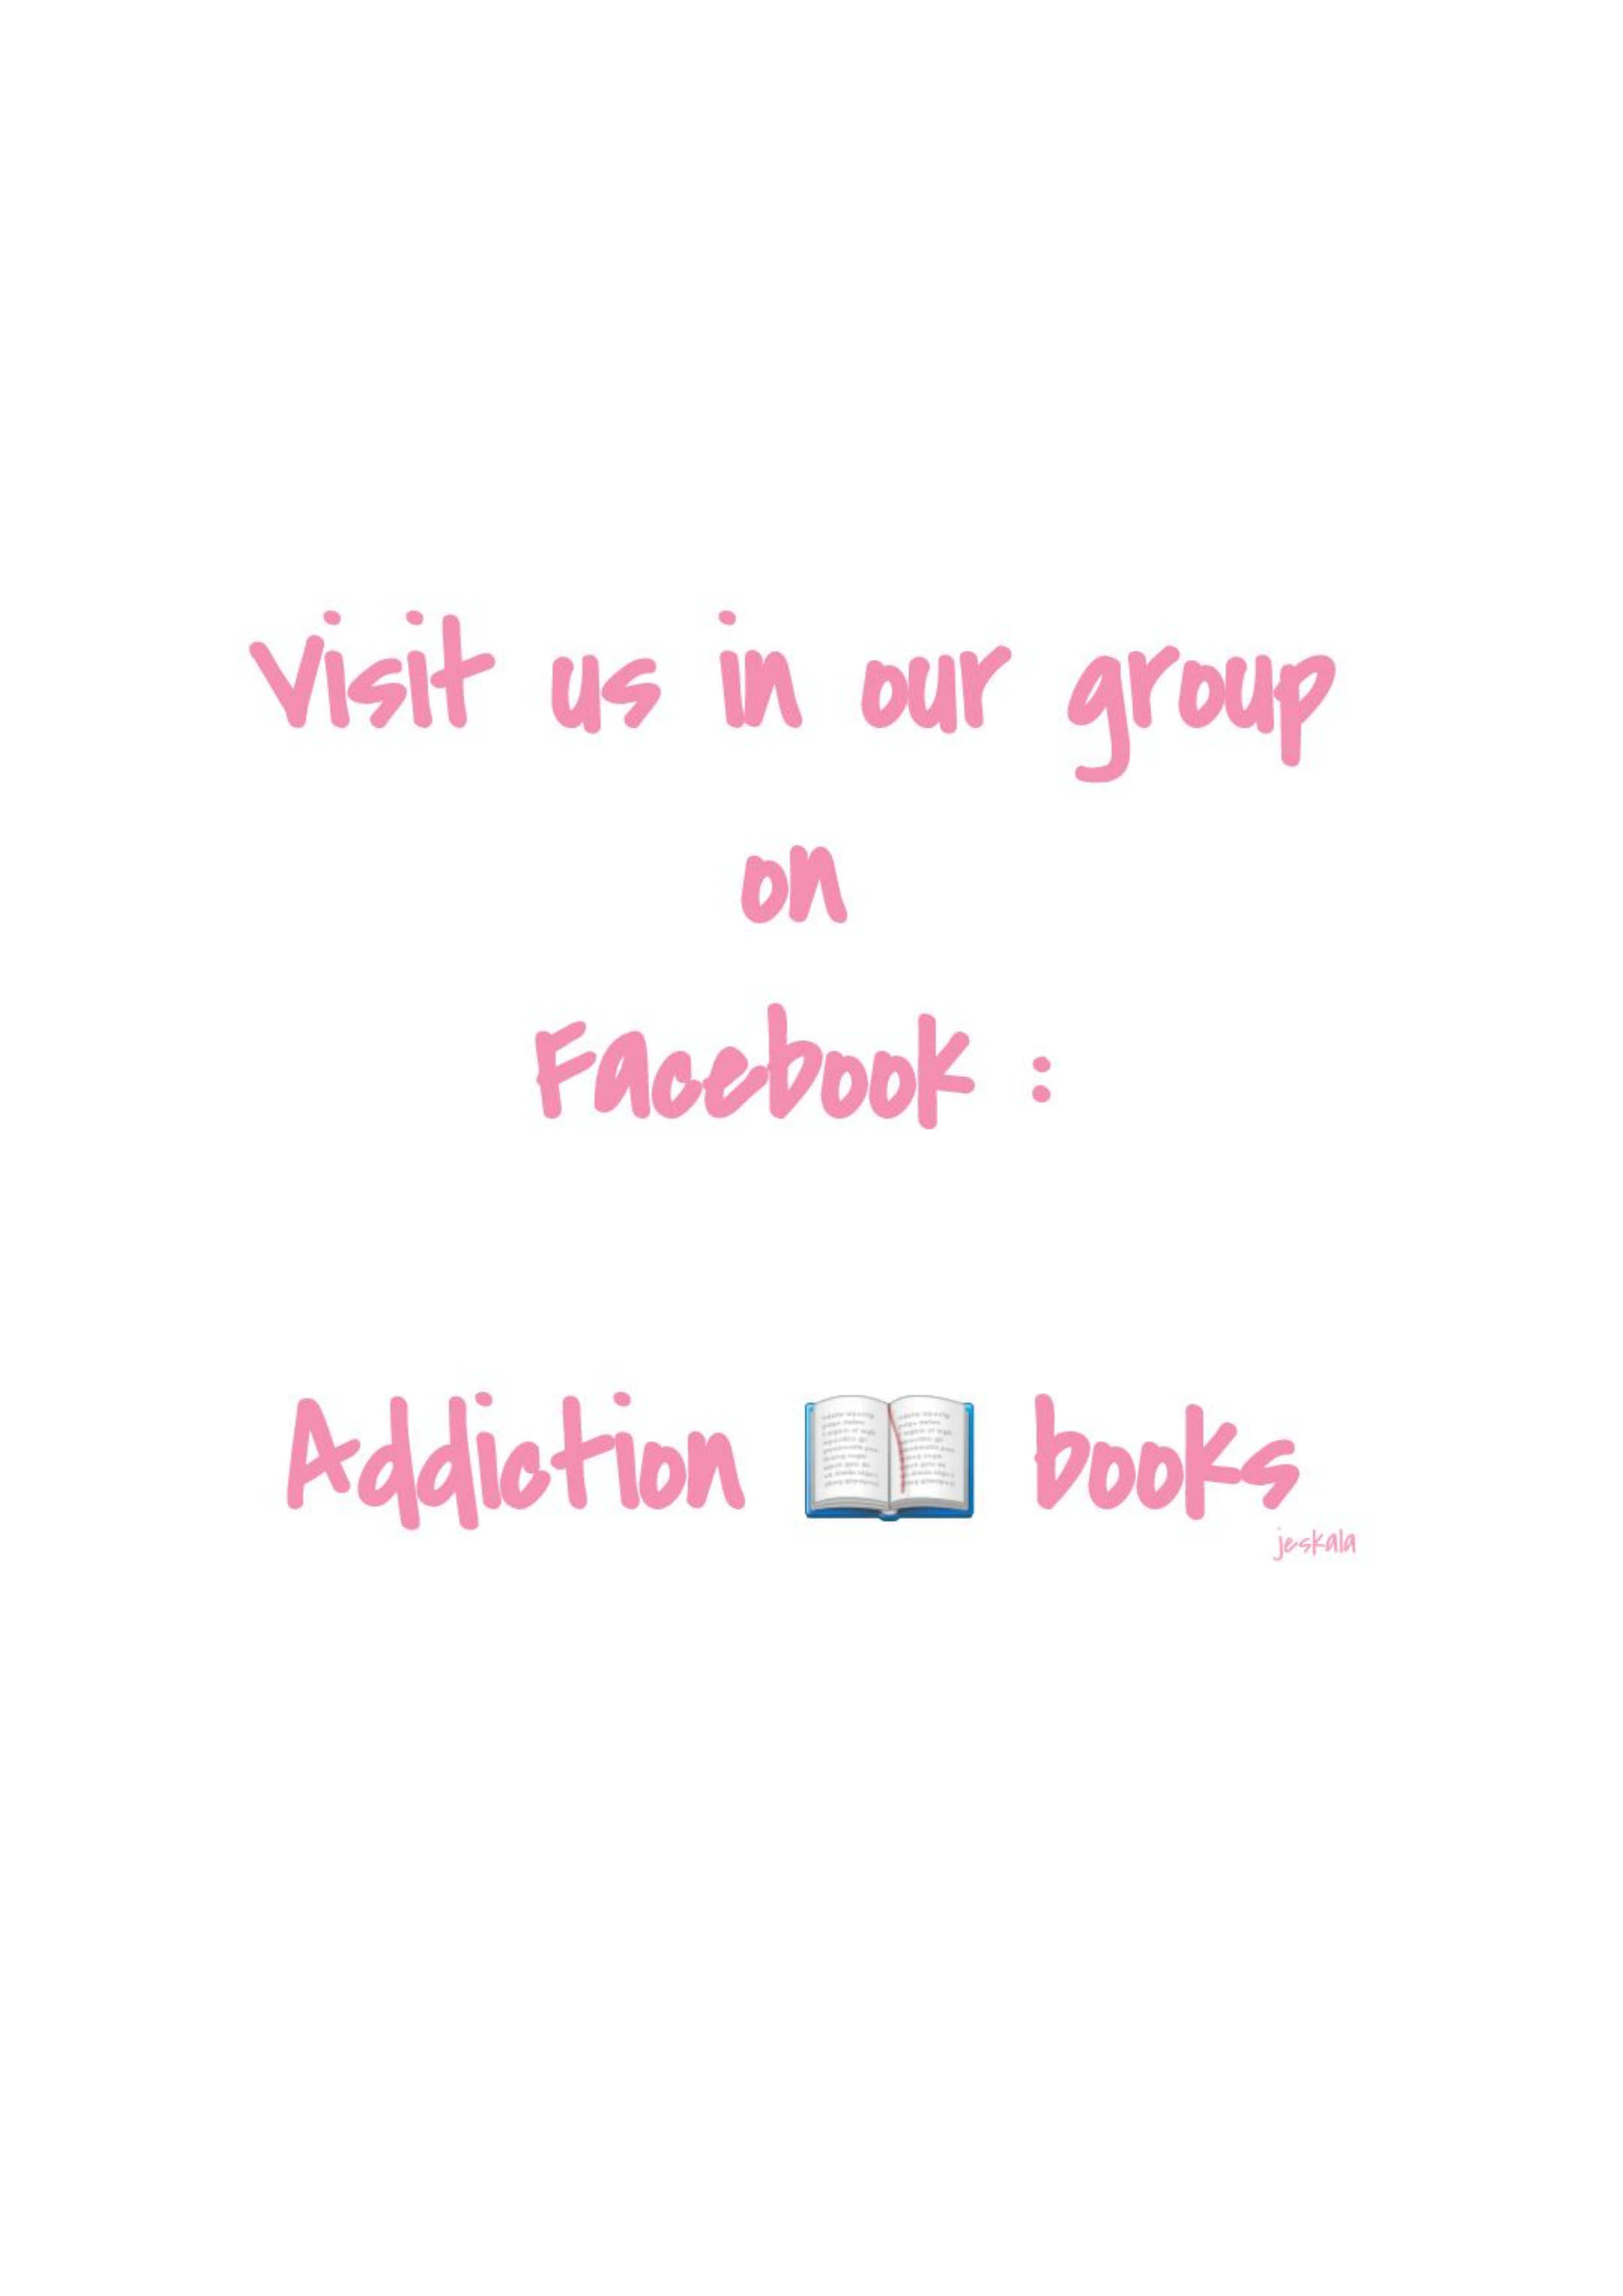 Visit us in our group
on
Facebook :
Addiction 📖 books
jeskala